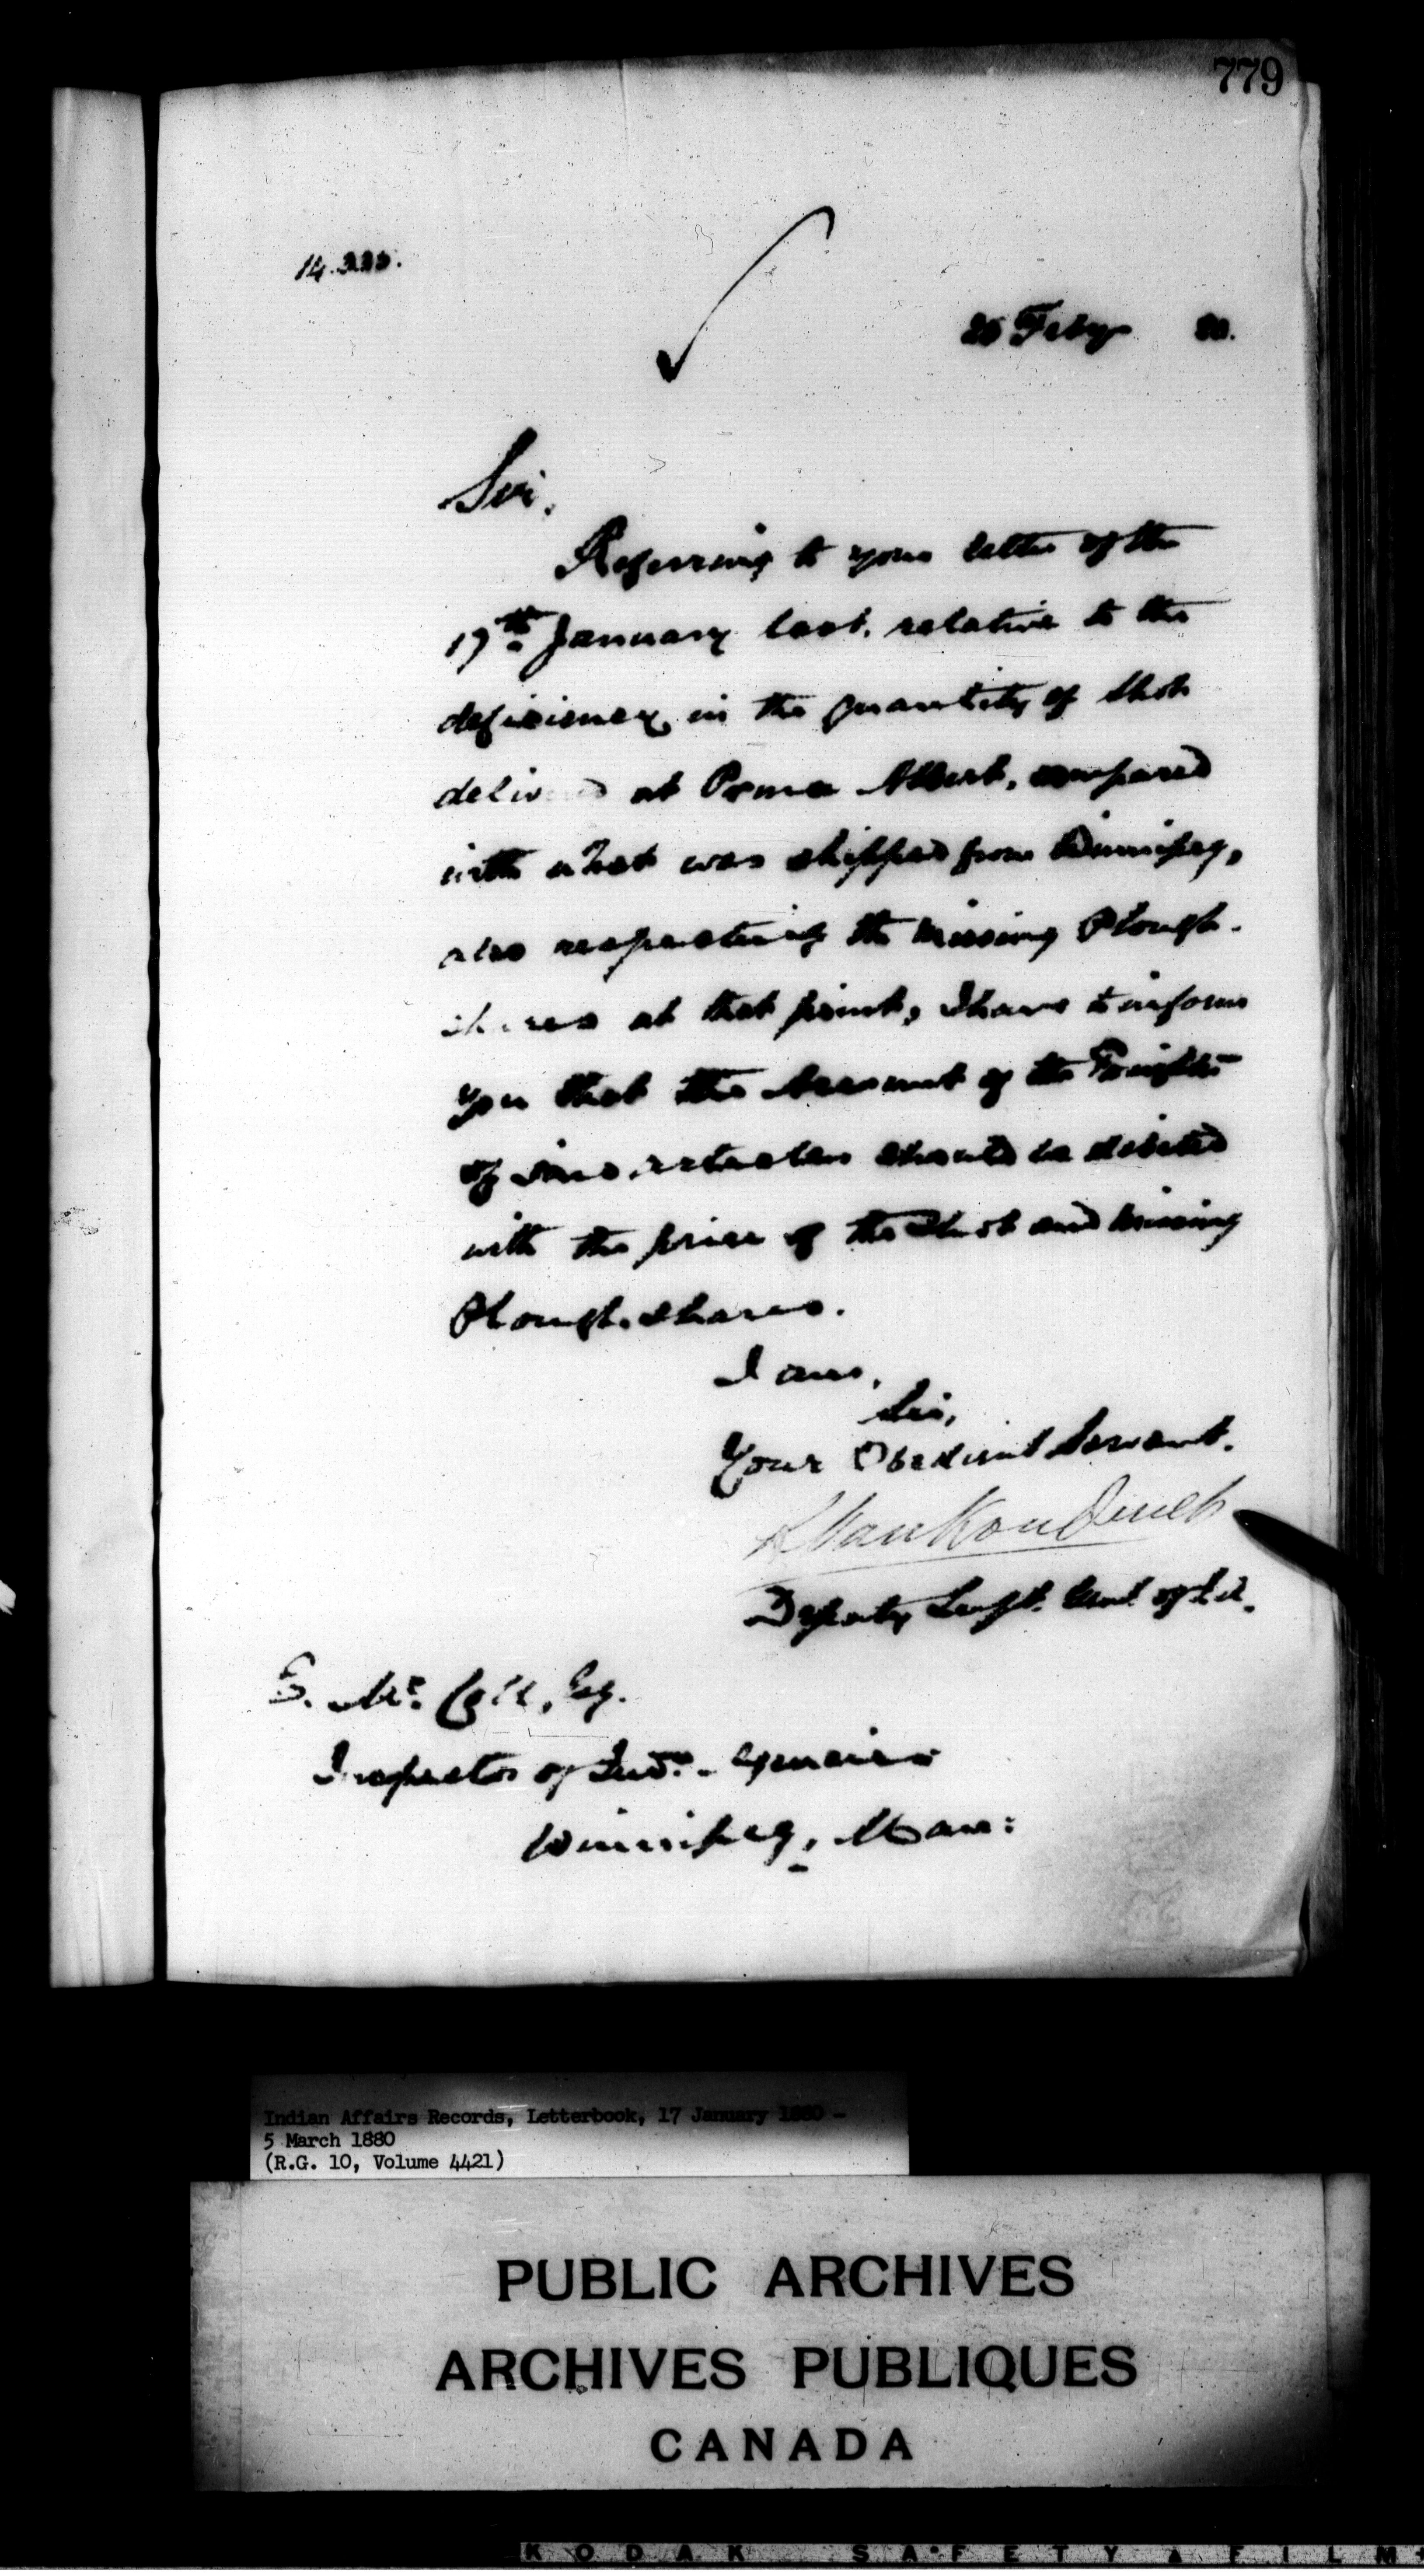 779
14.
Feby 80.
Sir,
Referring to your letter of the
17th January last, relative to the
deficiency in the quantity of Shot
delivered at Prince Albert, compared
with what was shipped from Winnipeg,
also respecting the missing Plough-
shares at that point, I have to inform
you that the Account of the Freighters
of articles should be debited
with the price of the Shot and missing
Plough-shares.
I am,
Sir,
Your Obedient Servant.
L VanKoughnet
Deputy Supt. Genl. of I.A.
E. McColl, Esq.
Inspector of Indn. Agencies
Winnipeg, Man:
Indian Affairs Records, Letterbook, 17 January 1880 -
5 March 1880
(R.G. 10, Volume 4421)
PUBLIC ARCHIVES
ARCHIVES PUBLIQUES
CANADA
KODAK SAFETY FILM